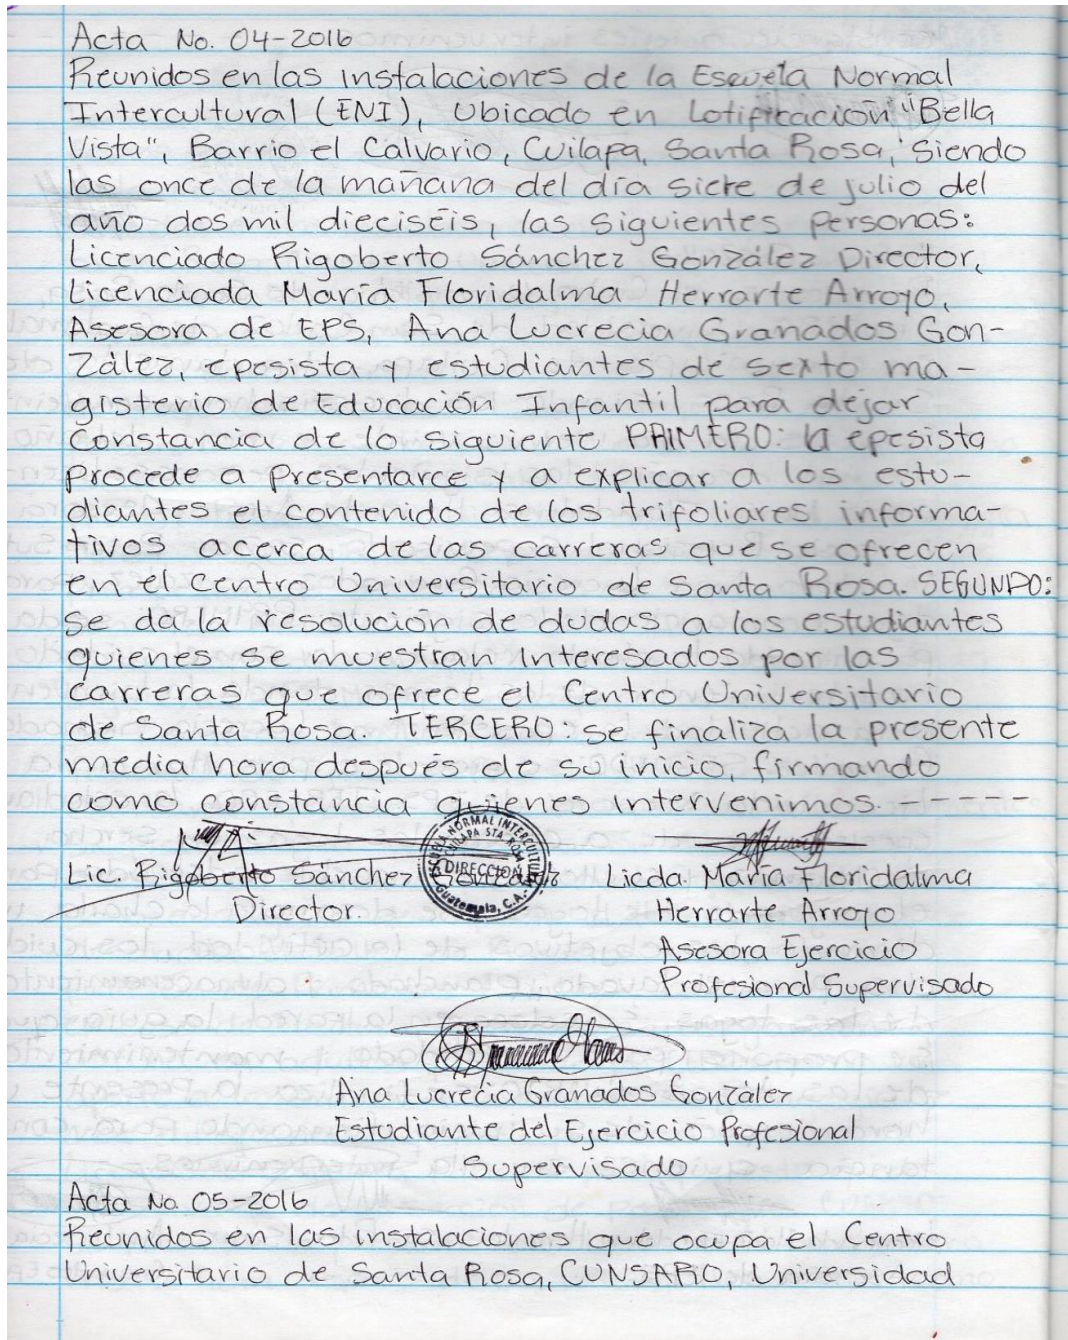 Acta No. 04-2016
Reunidos en las instalaciones de la Escuela Normal
Intercultural (ENI), Ubicado en Lotificación "Bella
Vista", Barrio el Calvario, Cuilapa, Santa Rosa, siendo
las once de la mañana del día siete de julio del
año dos mil dieciséis, las siguientes personas:
Licenciado Rigoberto Sánchez González Director,
Licenciada María Floridalma Herrarte Arroyo,
Asesora de EPS, Ana Lucrecia Granados Gon-
zález, epesista y estudiantes de sexto ma-
gisterio de Educación Infantil para dejar
constancia de lo siguiente PRIMERO: la epesista
procede a presentarce y a explicar a los estu-
diantes el contenido de los trifoliares informa-
tivos acerca de las carreras que se ofrecen
en el Centro Universitario de Santa Rosa. SEGUNDO:
se da la resolución de dudas a los estudiantes
quienes se muestran interesados por las
carreras que ofrece el Centro Universitario
de Santa Rosa. TERCERO: se finaliza la presente
media hora después de su inicio, firmando
como constancia quienes intervenimos. -----
ESCUELA NORMAL INTERCULTURAL
CUILAPA STA. ROSA
DIRECCION
Guatemala, C.A.
Lic. Rigoberto Sánchez González
Director.
Licda. María Floridalma
Herrarte Arroyo
Asesora Ejercicio
Profesional Supervisado
Ana Lucrecia Granados González
Estudiante del Ejercicio Profesional
Supervisado
Acta No. 05-2016
Reunidos en las instalaciones que ocupa el Centro
Universitario de Santa Rosa, CUNSARO, Universidad